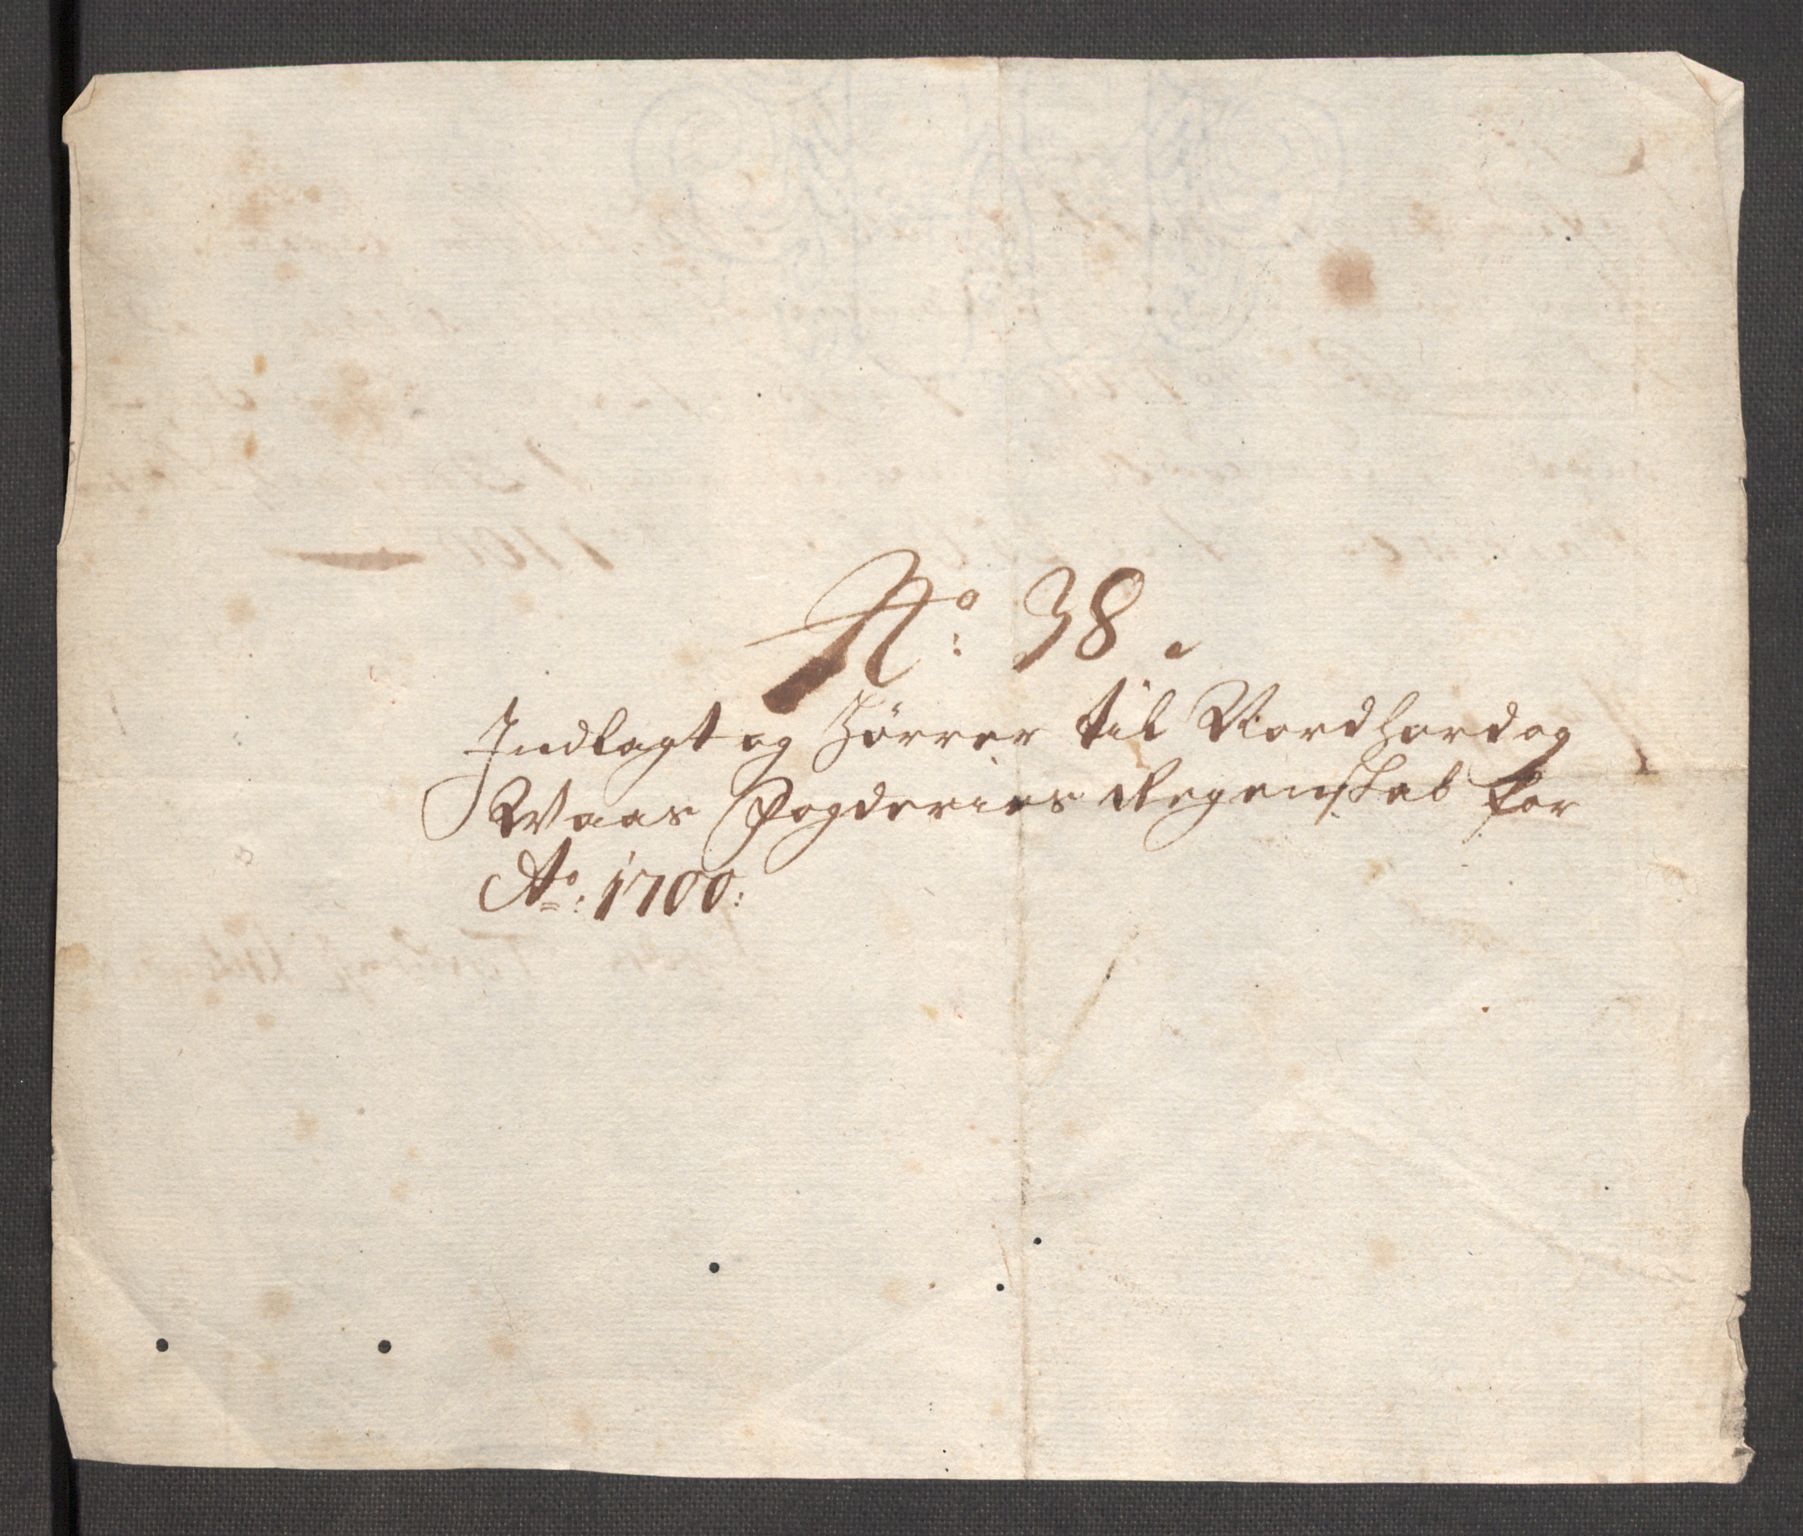 No: 38.
Indlagt og hørrer til Nordhord og
Waas Fogderies Regenskab for
Ao: 1700: